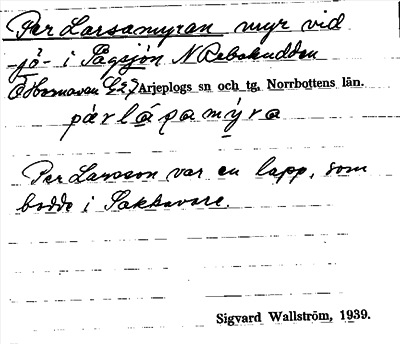 Per Larsamyran myr vid
-jå- i Tågsjön N Rebakudden
Ö Hornavan
Arjeplogs sn och tg, Norrbottens län.
pärlásamýra
Per Larsson var en lapp, som
bodde i Sakkavare.
Sigvard Wallström, 1939.